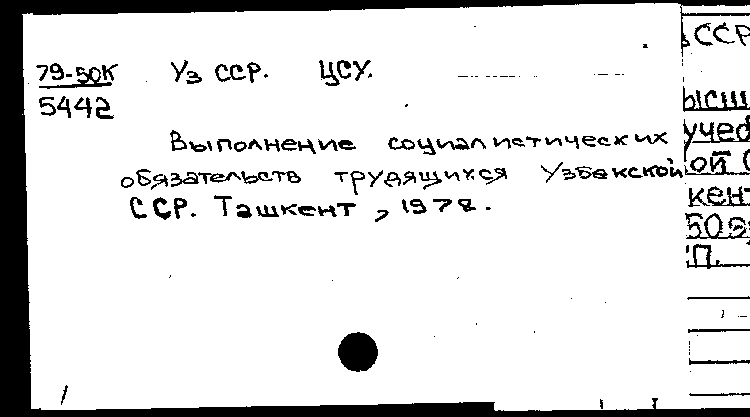 79-50К Уз ССР. ЦСУ.
5442
Выполнение социалистических
обязательств трудящихся Узбекской
ССР. Ташкент, 1978.
ССР
кент